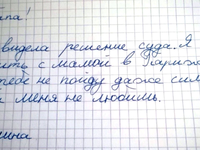 па!
видела решение суда. Я
ить с мамой в Париж
тебе не пойду даже сил
меня не любишь.